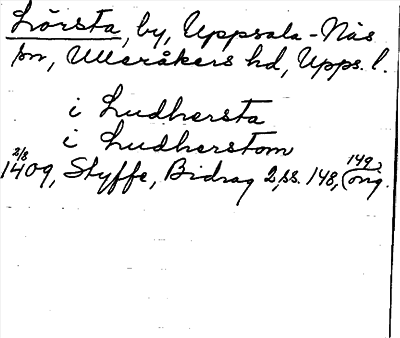 Lörsta, by, Uppsala-Näs
sn, Ulleråkers hd, Upps. l.
i Ludhersta
i Ludherstom
2/8 1409, Styffe, Bidrag 2, ss. 148, 149, orig.